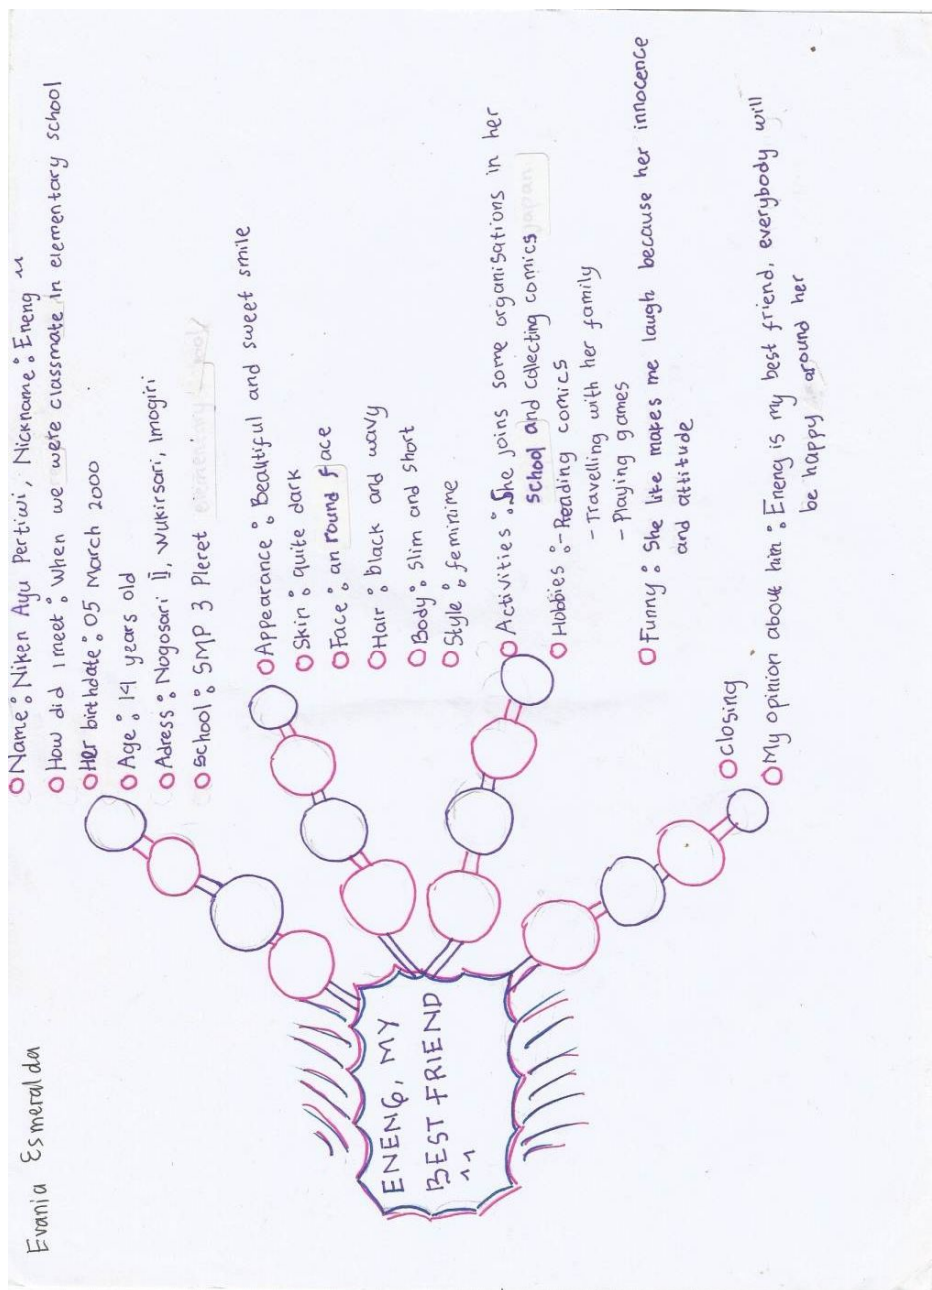 Evania Esmeralda
ENENG, MY
BEST FRIEND
^^
Name : Niken Ayu Pertiwi, Nickname : Eneng
How did I meet : When we were classmate in elementary school
Her birthdate : 05 March 2000
Age : 14 years old
Adress : Nogosari II, Wukirsari, Imogiri
School : SMP 3 Pleret
Appearance : Beautiful and sweet smile
Skin : quite dark
Face : an round face
Hair : black and wavy
Body : Slim and short
Style : feminime
Activities : She joins some organisations in her
school and collecting comics
Hobbies : - Reading comics
- Travelling with her family
- Playing games
Funny : She lite makes me laugh because her innocence
and attitude
closing
My opinion about him : Eneng is my best friend, everybody will
be happy around her